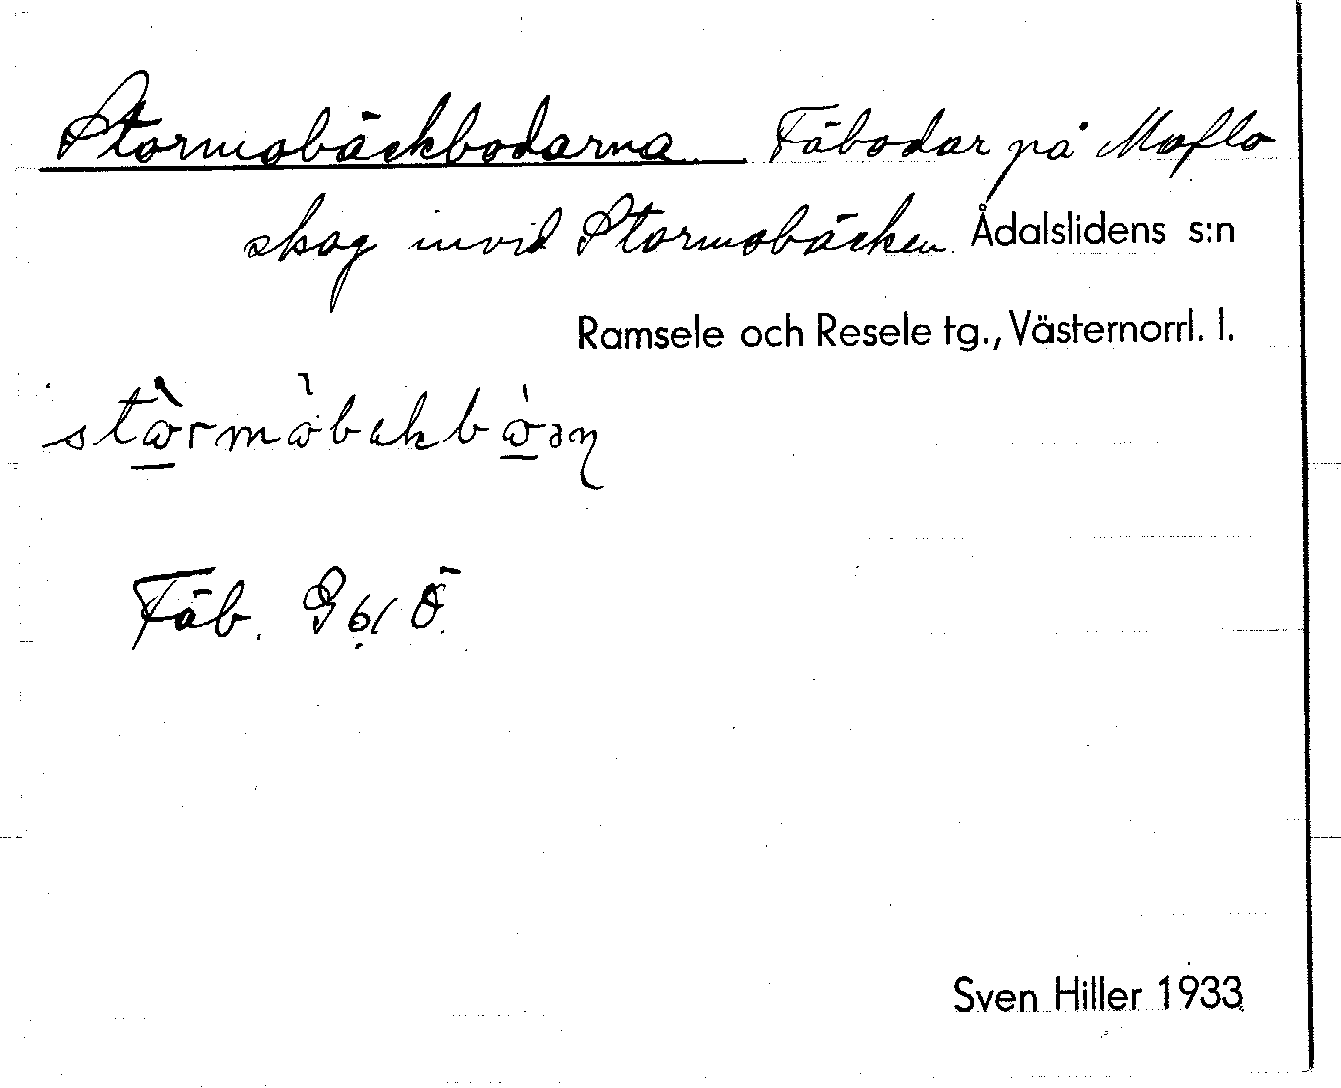 Stormobäckbodarna. Fäbodar på Moflo
skog invid Stormobäcken Ådalslidens s:n
Ramsele och Resele tg., Västernorrl. l.
Fäb. G 61 Ö.
Sven Hiller 1933